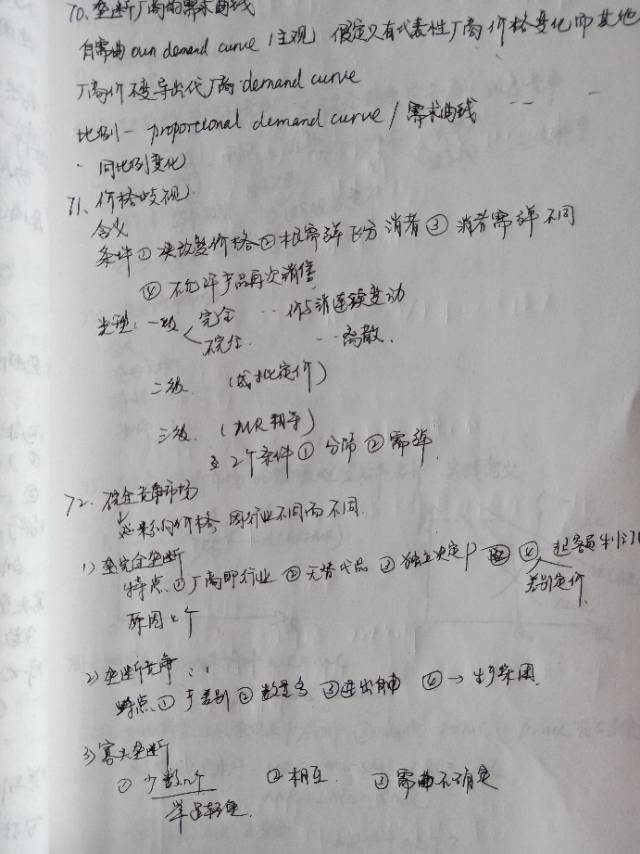 70、垄断厂商的需求曲线
自需曲 own demand curve (主观) 假定义有代表性厂商价格变化而其他
厂商价不变导出代厂商 demand curve
比例一 proportional demand curve / 需求曲线
同比例变化
71、价格歧视
含义
条件 ① 决改变价格 ② 根需弹区分消者 ③ 消者需弹不同
④ 不允许产品再次消售
类型: 一级 完全 价与消连续变动
不完全 离散
二级 (成批定价)
三级 (MR相等)
2个条件 ① 分市 ② 需弹
72、不完全竞争市场
价格 因行业不同而不同
1) 垄完全垄断
特点 ① 厂商即行业 ② 无替代品 ③ 独立决定P ④
差别定价
原因 个
2) 垄断竞争
特点 ① 产差别 ② 数量多 ③ 进出自由 ④ → 生产集团
3) 寡头垄断
① 少数几个 ② 相互 ③ 需曲不确定